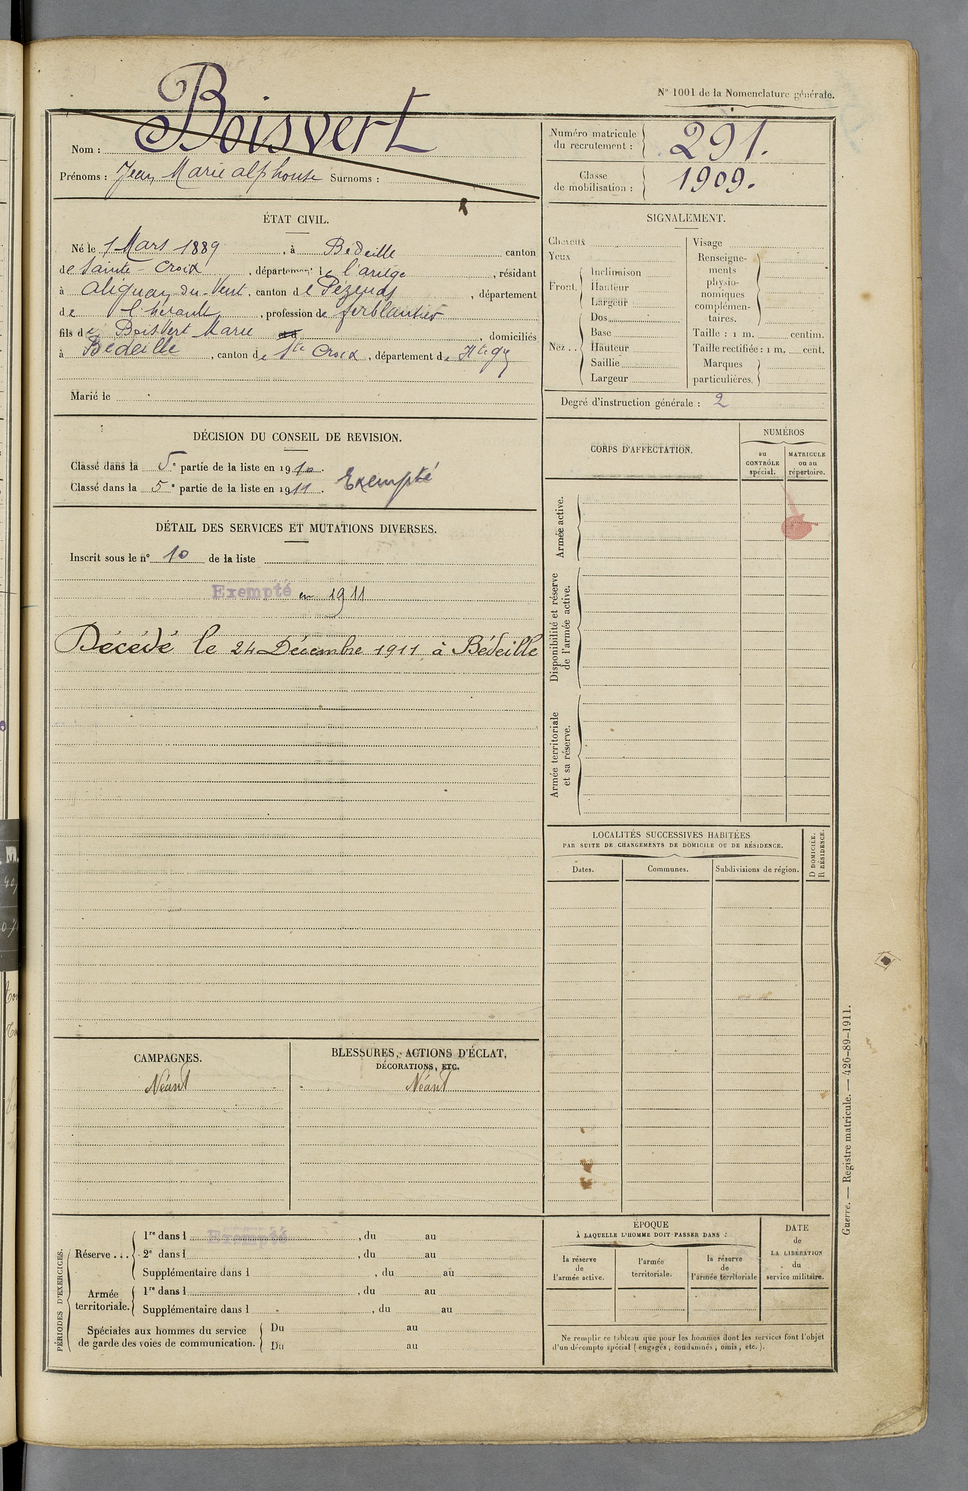 N° 1001 de la Nomenclature générale.
Nom : Boisvert
Prénoms : Jean Marie alphonse Surnoms :
Numéro matricule du recrutement : 291.
Classe de mobilisation : 1909.
ÉTAT CIVIL.
Né le 1 Mars 1889, à Bédeille canton
de Sainte-Croix, département de l'ariège, résidant
à du-Vent, canton de Pézenas, département
de l'hérault, profession de ferblantier
fils de Boisvert Marie, domiciliés
à Bédeille, canton de Ste Croix, département de
Marié le
SIGNALEMENT.
Cheveux
Yeux
Front.
Inclinaison
Hauteur
Largeur
Nez..
Dos
Base
Hauteur
Saillie
Largeur
Visage
Renseigne-
ments
physio-
nomiques
complémen-
taires.
Taille : 1 m. centim.
Taille rectifiée : 1 m. cent.
Marques
particulières.
Degré d'instruction générale : 2
DÉCISION DU CONSEIL DE REVISION.
Classé dans la 5e partie de la liste en 1910.
Classé dans la 5e partie de la liste en 1911. Exempté
DÉTAIL DES SERVICES ET MUTATIONS DIVERSES.
Inscrit sous le n° 10 de la liste
Exempté en 1911
Décédé le 24 Décembre 1911 à Bédeille
CORPS D'AFFECTATION.
NUMÉROS
au
CONTRÔLE
spécial.
MATRICULE
ou au
répertoire.
Armée active.
Disponibilité et réserve
de l'armée active.
Armée territoriale
et sa réserve.
LOCALITÉS SUCCESSIVES HABITÉES
PAR SUITE DE CHANGEMENTS DE DOMICILE OU DE RÉSIDENCE.
Dates.
Communes.
Subdivisions de région.
D DOMICILE.
R RÉSIDENCE.
CAMPAGNES.
Néant
BLESSURES, ACTIONS D'ÉCLAT,
DÉCORATIONS, ETC.
Néant
PÉRIODES D'EXERCICES.
Réserve...
1re dans l Exempté, du au
2e dans l, du au
Supplémentaire dans l, du au
Armée
territoriale.
1re dans l, du au
Supplémentaire dans l, du au
Spéciales aux hommes du service
de garde des voies de communication.
Du au
Du au
ÉPOQUE
À LAQUELLE L'HOMME DOIT PASSER DANS :
la réserve
de
l'armée active.
l'armée
territoriale.
la réserve
de
l'armée territoriale
DATE
de
LA LIBÉRATION
du
service militaire.
Ne remplir ce tableau que pour les hommes dont les services font l'objet
d'un décompte spécial (engagés, condamnés, omis, etc.).
Guerre. — Registre matricule. — 426-89-1911.